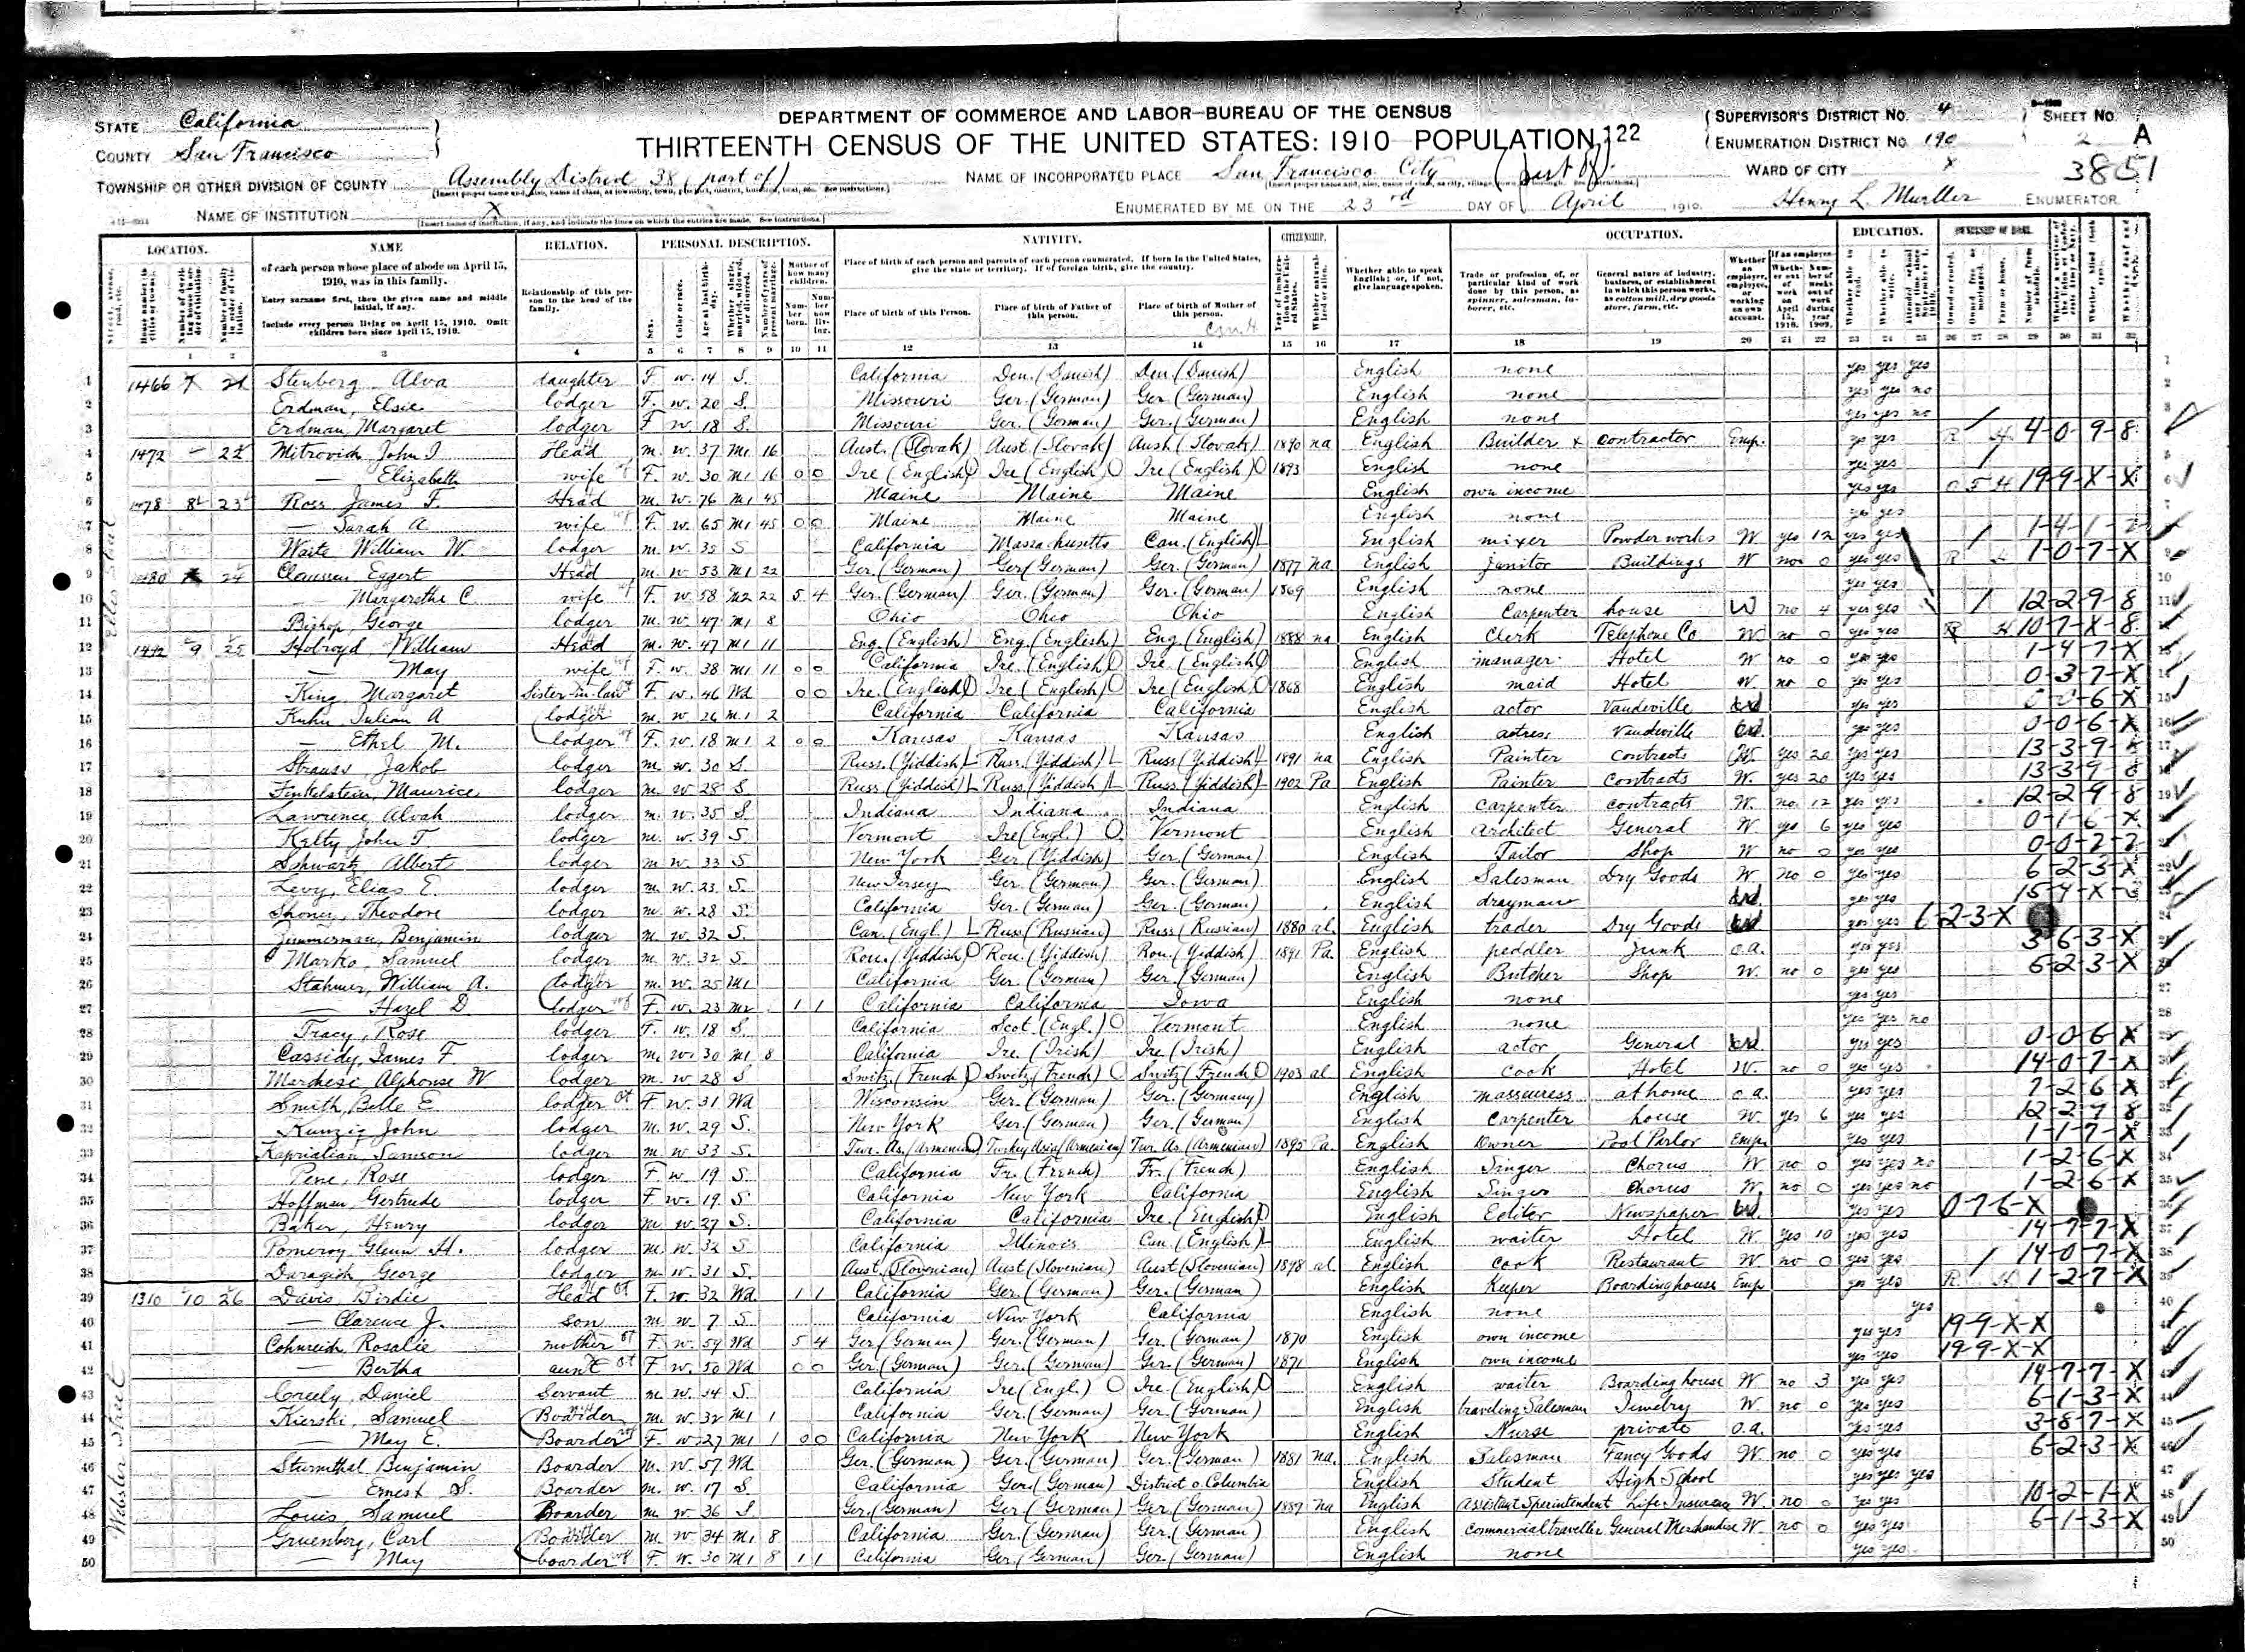 DEPARTMENT OF COMMERCE AND LABOR—BUREAU OF THE CENSUS
THIRTEENTH CENSUS OF THE UNITED STATES: 1910 POPULATION
STATE California
COUNTY San Francisco
TOWNSHIP OR OTHER DIVISION OF COUNTY Assembly District 38 (part of)
NAME OF INSTITUTION X
NAME OF INCORPORATED PLACE San Francisco City (part of)
ENUMERATED BY ME ON THE 23rd DAY OF April 1910.
SUPERVISOR'S DISTRICT NO. 4
ENUMERATION DISTRICT NO. 190
WARD OF CITY X
Henry L. Mueller ENUMERATOR
SHEET NO. 2 A
3851
LOCATION. NAME RELATION. PERSONAL DESCRIPTION. NATIVITY. CITIZENSHIP. OCCUPATION. EDUCATION.
of each person whose place of abode on April 15, 1910, was in this family.
Enter surname first, then the given name and middle initial, if any.
Include every person living on April 15, 1910. Omit children born since April 15, 1910.
Relationship of this person to the head of the family.
Place of birth of each person and parents of each person enumerated. If born in the United States, give the state or territory. If of foreign birth, give the country.
Place of birth of this Person. Place of birth of Father of this person. Place of birth of Mother of this person.
Whether able to speak English; or, if not, give language spoken.
Trade or profession of, or particular kind of work done by this person, as spinner, salesman, laborer, etc.
General nature of industry, business, or establishment in which this person works, as cotton mill, dry goods store, farm, etc.
1 1466 Stenberg Alva daughter F w 14 S. California Den. (Danish) Den. (Danish) English none yes yes yes
2 Erdman, Elsie lodger F. w. 20 S. Missouri Ger. (German) Ger. (German) English none yes yes no
3 Erdman, Margaret lodger F w 18 S. Missouri Ger. (German) Ger. (German) English none yes yes no
4 1472 Mitrovich John I Head m. w. 37 M1 16 Aust. (Slovak) Aust (Slovak) Aust (Slovak) 1890 na English Builder & contractor Emp. yes yes 4-0-9-8
5 — Elizabeth wife F. w. 30 M1 16 0 0 Ire (English) Ire (English) Ire (English) 1893 English none yes yes
6 1478 8 23 Ross James F. Head m. w. 76 M1 45 Maine Maine Maine English own income yes yes 19-9-X-X
7 — Sarah A wife F. w. 65 M1 45 0 0 Maine Maine Maine English none yes yes
8 Waite William W. lodger m. w. 35 S California Massachusetts Can. (English) English mixer Powder works W yes 12 yes yes
9 1480 24 Claussen Eggert Head m. w 53 M1 22 Ger. (German) Ger (German) Ger. (German) 1877 na English Janitor Buildings W no 0 yes yes 1-0-7-X
10 — Margarethe C. wife F. w 58 M2 22 5 4 Ger. (German) Ger. (German) Ger. (German) 1869 English none yes yes
11 Bishop George lodger m. w. 47 M1 8 Ohio Ohio Ohio English Carpenter house W no 4 yes yes 12-2-9-8
12 9 25 Holroyd William Head m. w. 47 M1 11 Eng. (English) Eng. (English) Eng (English) 1888 na English Clerk Telephone Co W no 0 yes yes 10-7-X-8
13 — May wife F w. 38 M1 11 0 0 California Ire. (English) Ire. (English) English manager Hotel W no 0 yes yes 1-4-7-X
14 King Margaret Sister-in-law F w. 46 Wd 0 0 Ire. (English) Ire (English) Ire (English) 1868 English maid Hotel W. no 0 yes yes 0-3-7-X
15 Kuhn Julian A lodger m. w 26 M1 2 California California California English actor Vaudeville yes yes 0-0-6-X
16 — Ethel M. lodger F. w. 18 M1 2 0 0 Kansas Kansas Kansas English actress Vaudeville yes yes 0-0-6-X
17 Strauss Jakob lodger m w. 30 S Russ. (Yiddish) Russ. (Yiddish) Russ (Yiddish) 1891 na English Painter contracts W. yes 20 yes yes 13-3-9-8
18 Finkelstein, Maurice lodger m. w 28 S Russ (Yiddish) Russ (Yiddish) Russ (Yiddish) 1902 Pa English Painter Contracts W. yes 20 yes yes 13-3-9-8
19 Lawrence Alvah lodger m. w. 35 S Indiana Indiana Indiana English carpenter contracts W. no 12 yes yes 12-2-9-8
20 Kelty John T. lodger m. w. 39 S. Vermont Ire (Engl.) Vermont English architect General W yes 6 yes yes 0-1-6-X
21 Schwartz Albert lodger m w. 33 S New York Ger (Yiddish) Ger. (German) English Tailor Shop W no 0 yes yes 0-0-2-2
22 Levy, Elias E. lodger m. w. 23 S. New Jersey Ger. (German) Ger. (German) English Salesman Dry Goods W. no 0 yes yes 6-2-3-X
23 Theodore lodger m. w. 28 S. California Ger. (German) Ger. (German) English drayman yes yes 15-4-X
24 Zimmerman, Benjamin lodger m. w. 32 S. Can. (Engl.) Russ (Russian) Russ (Russian) 1880 al. English trader Dry Goods yes yes 6-2-3-X
25 Marko, Samuel lodger m. w. 32 S. Rou. (Yiddish) Rou. (Yiddish) Rou. (Yiddish) 1891 Pa. English peddler junk o.a. yes yes 3-6-3-X
26 Stahmer, William A. lodger m. w. 25 M1 California Ger. (German) Ger. (German) English Butcher Shop W. no 0 yes yes 6-2-3-X
27 — Hazel D lodger F w. 23 1 1 California California Iowa English none yes yes
28 Tracy, Rose lodger F. w. 18 S. California Scot. (Engl.) Vermont English none yes yes no
29 Cassidy, James F. lodger m. w. 30 M1 8 California Ire. (Irish) Ire (Irish) English actor General yes yes 0-0-6-X
30 Marchesi Alphonse W lodger m. w 28 S Switz. (French) Switz (French) Switz (French) 1903 al English cook Hotel W. no 0 yes yes 14-0-7-X
31 Smith, Belle E. lodger F w. 31 Wd Wisconsin Ger. (German) Ger. (Germany) English masseuress at home o a. yes yes 7-2-6-X
32 Kunzig John lodger m. w. 29 S. New York Ger. (German) Ger. (German) English carpenter house W. yes 6 yes yes 12-2-9-8
33 Kaprialian, Samson lodger m w. 33 S. Tur. As. (Armenian) Turkey Asia (Armenian) Tur. As (Armenian) 1895 Pa. English Owner Pool Parlor Emp. yes yes 1-1-7-X
34 Pene, Rose lodger F w. 19 S. California Fr. (French) Fr. (French) English Singer Chorus W no 0 yes yes no 1-2-6-X
35 Hoffman, Gertrude lodger F w. 19. S. California New York California English Singer Chorus W. no 0 yes yes no 1-2-6-X
36 Baker, Henry lodger m. w. 27 S. California California Ire. (English) English Editor Newspaper yes yes 0-7-6-X
37 Pomeroy Glenn H. lodger m. w. 32 S California Illinois Can (English) English waiter Hotel W. yes 10 yes yes 14-7-7-X
38 George lodger m. w. 31 S. Aust. (Slovenian) Aust (Slovenian) Aust (Slovenian) 1898 al. English cook Restaurant W no 0 yes yes 14-0-7-X
39 1310 10 26 Davis, Birdie Head F. w. 32 Wd. 1 1 California Ger. (German) Ger. (German) English Keeper Boardinghouse Emp yes yes R H 1-2-7-X
40 — Clarence J. son m. w. 7 S. California New York California English none yes
41 Cohnreich, Rosalie mother F w. 59 Wd 5 4 Ger (German) Ger. (German) Ger. (German) 1870 English own income yes yes 19-9-X-X
42 — Bertha aunt F w. 50 Wd 0 0 Ger. (German) Ger. (German) Ger. (German) 1871 English own income yes yes 19-9-X-X
43 Creely, Daniel Servant m. w. 34 S. California Ire (Engl.) Ire. (English) English waiter Boarding house W no 3 yes yes 14-7-7-X
44 Kierski, Samuel Boarder m. w. 32 M1 1 California Ger. (German) Ger. (German) English traveling Salesman Jewelry W no 0 yes yes 6-1-3-X
45 — May E. Boarder F. w. 27 M1 1 0 0 California New York New York English Nurse private o.a. yes yes 3-8-7-X
46 Sturmthal Benjamin Boarder m. w. 57 Wd Ger. (German) Ger. (German) Ger. (German) 1881 na. English Salesman Fancy Goods W no 0 yes yes 6-2-3-X
47 — Ernest S. Boarder m. w. 17 S. California Ger. (German) District o Columbia English Student High School yes yes yes
48 Louis, Samuel Boarder m w 36 S Ger. (German) Ger. (German) Ger. (German) 1887 na English assistant Sperintendent Life Insurance W. no 0 yes yes 10-2-1-X
49 Gruenberg, Carl Boarder m. w 34 M1 8 California Ger. (German) Ger. (German) English commercial traveller General Merchandise W. no 0 yes yes 6-1-3-X
50 — May boarder F. w. 30 M1 8 1 1 California Ger. (German) Ger. (German) English none yes yes
Webster Street